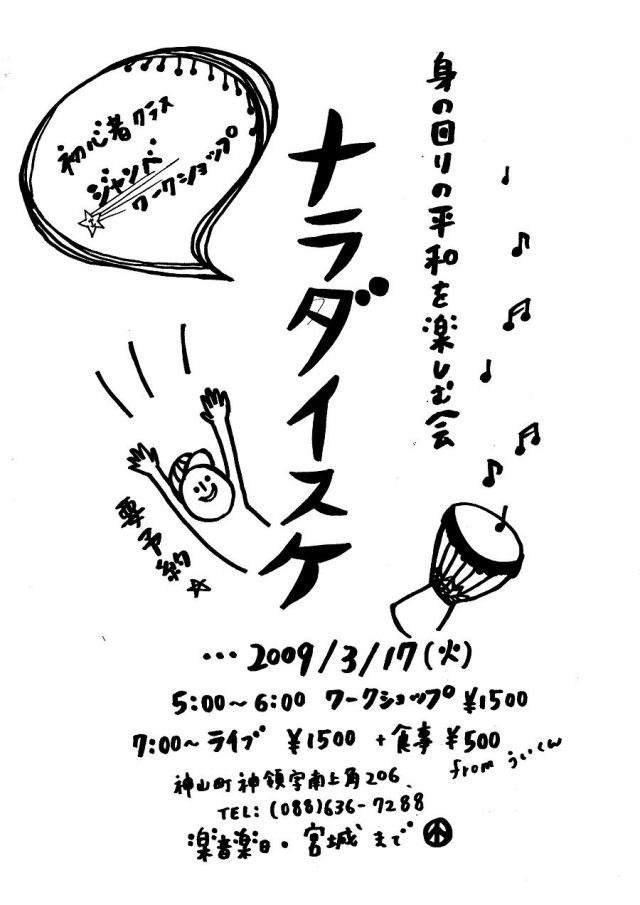 身の回りの平和を楽しむ会
ナラダイスケ
初心者クラス
ジャンベ
ワークショップ
要予約☆
…2009/3/17(火)
5:00～6:00 ワークショップ ¥1500
7:00～ライブ ¥1500 +食事 ¥500
from ういくん
神山町神領字南上角206、
TEL:(088)636-7288
楽音楽日・宮城まで